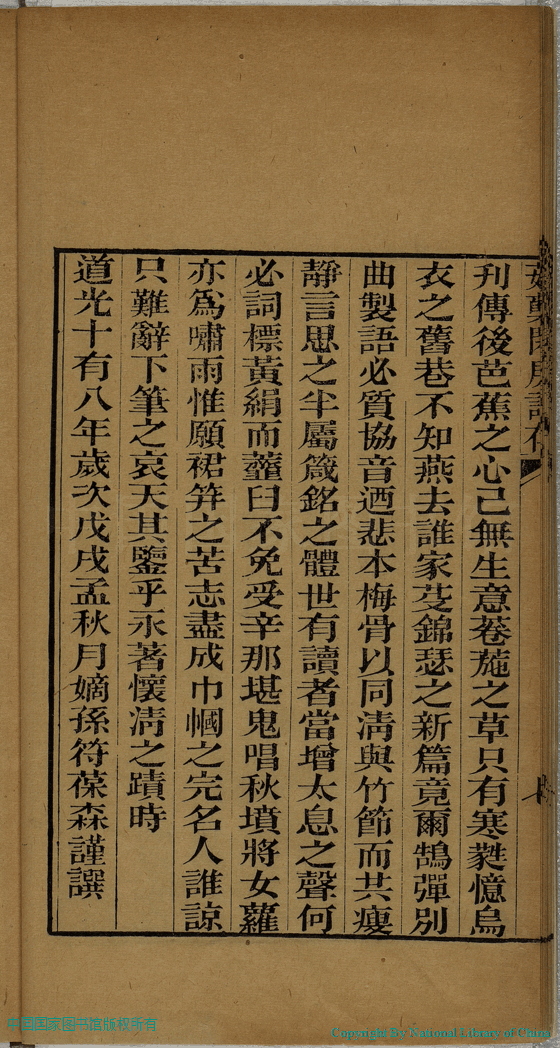 刋傳後芭蕉之心已無生意卷葹之草只有寒蕤憶烏
衣之舊巷不知燕去誰家芟錦瑟之新篇竟爾鵠彈別
曲製語必質協音迺悲本梅骨以同淸與竹節而共瘦
靜言思之半屬箴銘之體世有讀者當增太息之聲何
必詞標黃絹而虀臼不免受辛那堪鬼唱秋墳將女蘿
亦爲嘯雨惟願裙笄之苦志盡成巾幗之完名人誰諒
只難辭下筆之哀天其鑒乎永著懷淸之蹟時
道光十有八年歲次戊戌孟秋月嫡孫符葆森謹譔
中国国家图书馆版权所有
Copyright By National Library of China